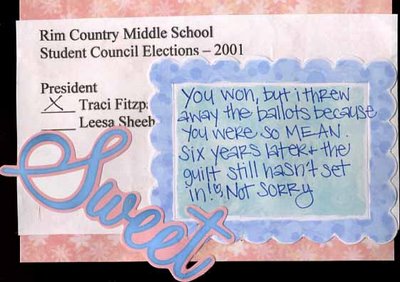 Rim Country Middle School
Student Council Elections – 2001
President
X Traci Fitzp
Leesa Sheeh
You won, but i threw
away the ballots because
you were so MEAN.
six years later & the
guilt still hasn't set
in! Not SORRY
Sweet